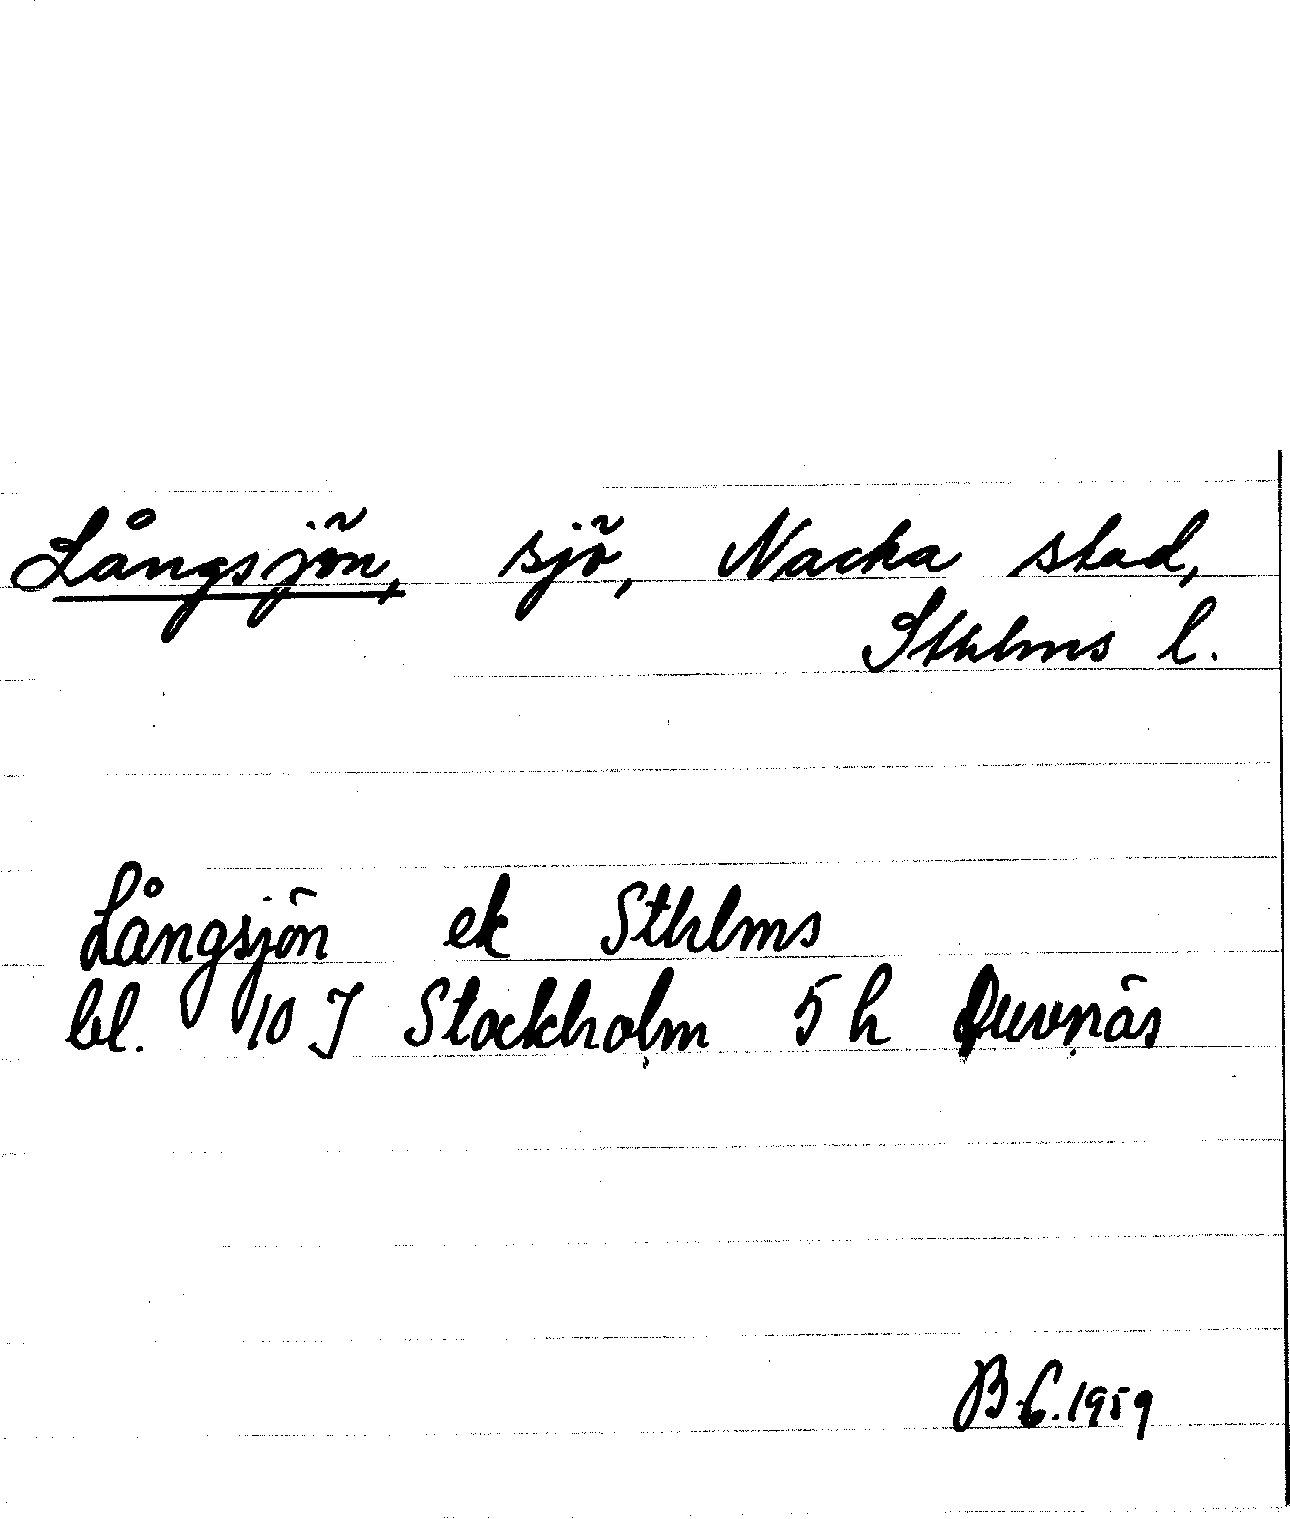 Långsjön, sjö, Nacka stad,
Sthlms l.
Långsjön ek Sthlms
bl. 10 J Stockholm 5 h Duvnäs
B.C. 1959